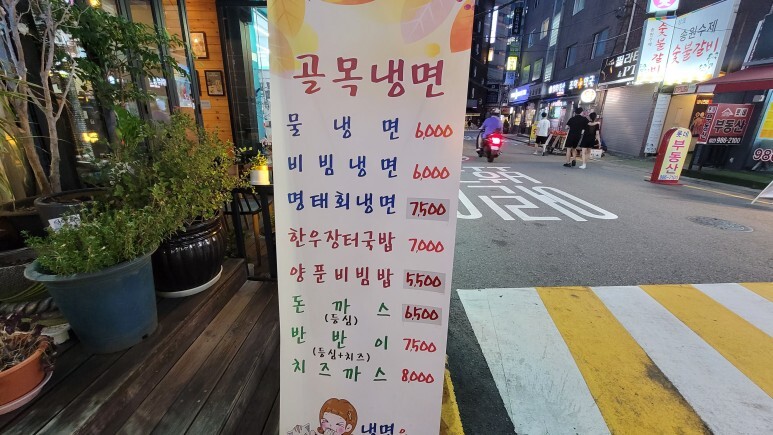 골목냉면
물냉면 6,000
비빔냉면 6,000
명태회냉면 7,500
한우장터국밥 7,000
양푼비빔밥 5,500
돈까스 6,500
(등심)
반반이 7,500
(등심+치즈)
치즈까스 8,000
냉면
송원수제
숯불갈비
숯불갈비
부동산
986-2100
부동산